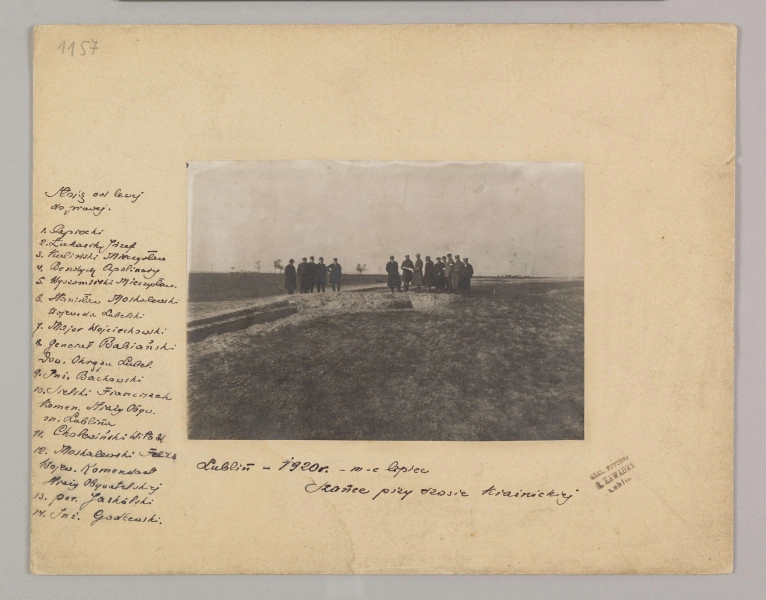 1157
od lewej
do prawej.
1. Sapiecki
2. Łukasik, Józef
3. Kuliński Mieczysław
4. Bendych Apolinary
5. Wyszomirski Mieczysław.
6. Stanisław Moskalewski
Wojewoda Lubelski
7. Major Wojciechowski
8. generał Babiański
Dow. Okręgu Lubel.
9. Inż. Bachowski
10. Sielski Franciszek
Komen. Straży Obyw.
m. Lublina
11. Witold
12. Moskalewski Feliks
Wojew. Komendant
Straży Obywatelskiej
13. por. Jaskólski
14. Inż. Godlewski.
Lublin - 1920r. - m-c lipiec
Szańce przy szosie Kraśnickiej
ZAWADZKI
Lublin